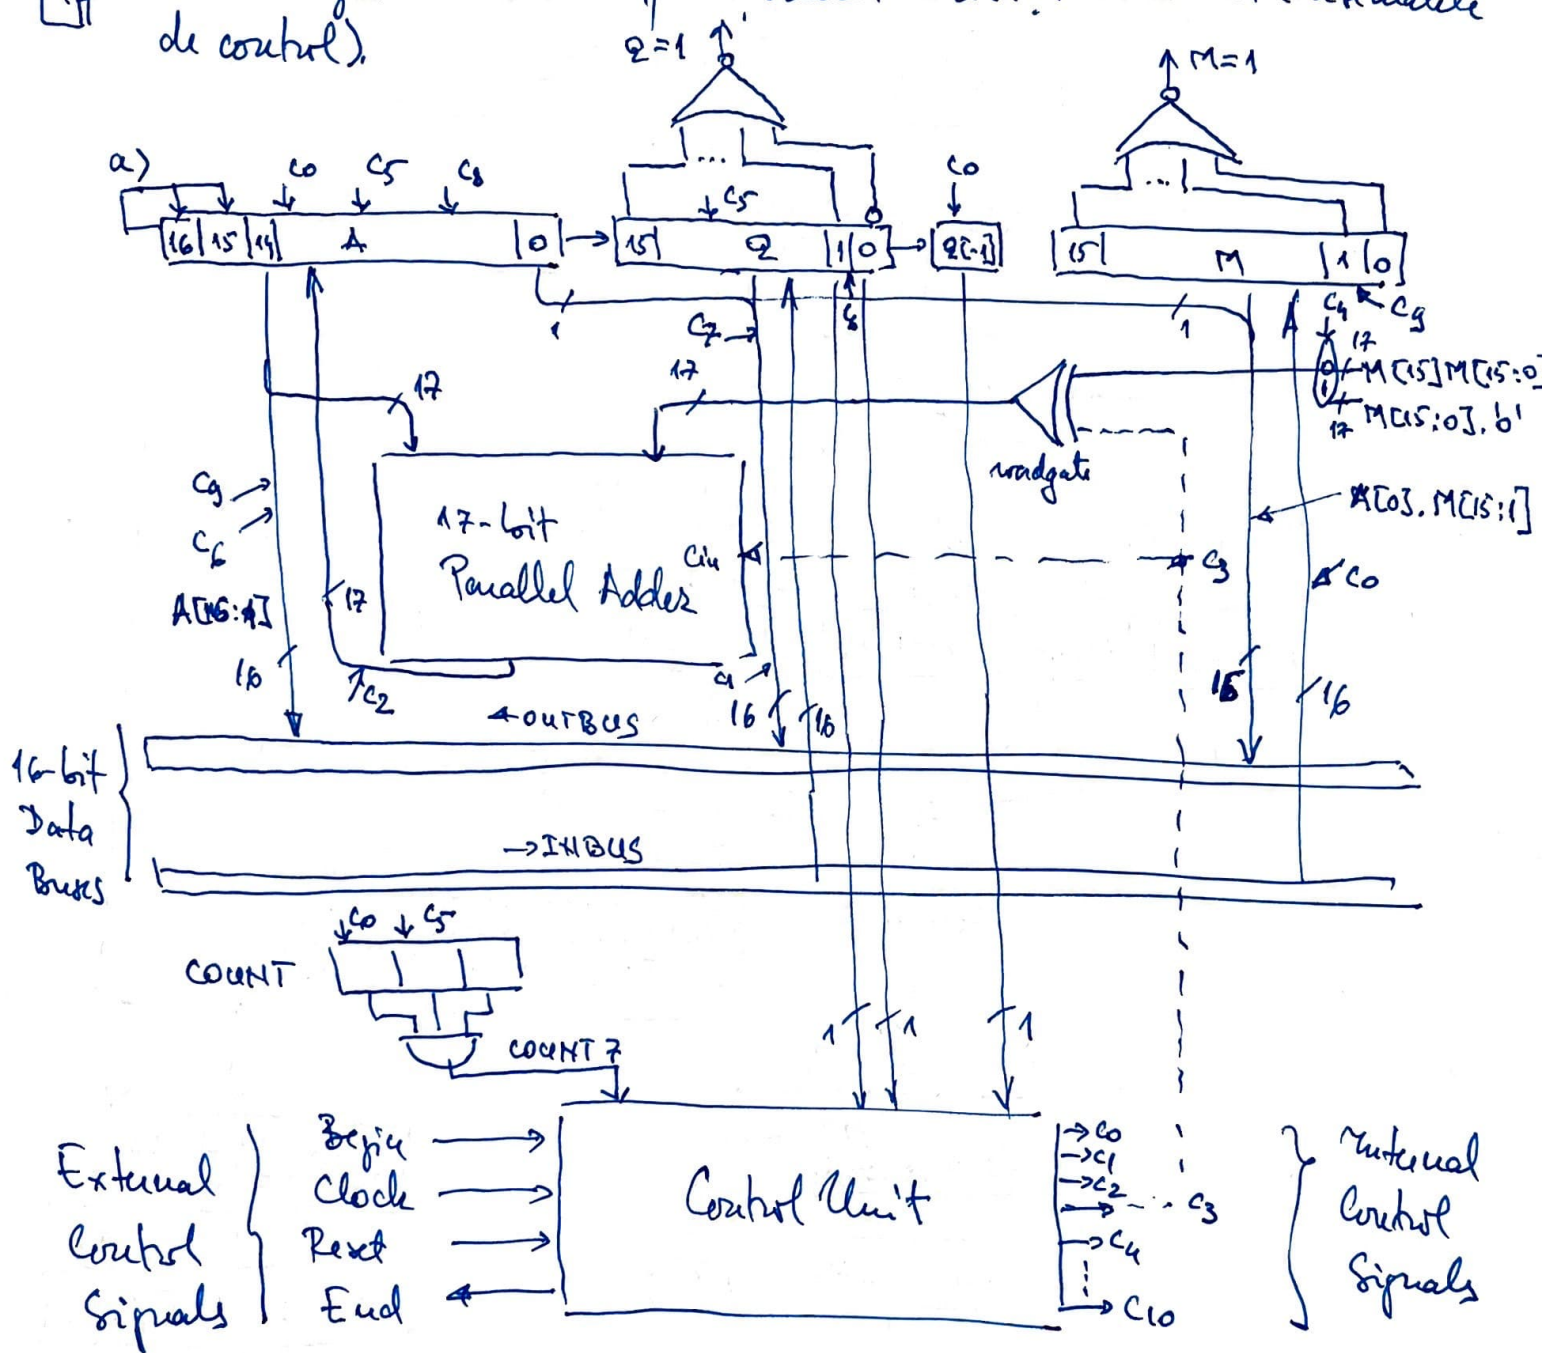 de control).
Q=1
M=1
a)
c0
c5
c8
c5
c0
16 15 14 A 0
15 Q 1 0
Q[-1]
15 M 1 0
1
c7
1
c4
c9
17
17
17
0
M[15]M[15:0]
1
17
M[15:0].'0'
wordgate
c9
c6
A[16:1]
16
17
17-bit
Parallel Adder
Cin
c3
A[0].M[15:1]
c0
c2
c1
16
16
16
16
OUTBUS
16-bit
Data
Buses
INBUS
c0
c5
COUNT
COUNT7
1
1
1
External
Control
Signals
Begin
Clock
Reset
End
Control Unit
c0
c1
c2
c3
c4
c10
Internal
Control
Signals